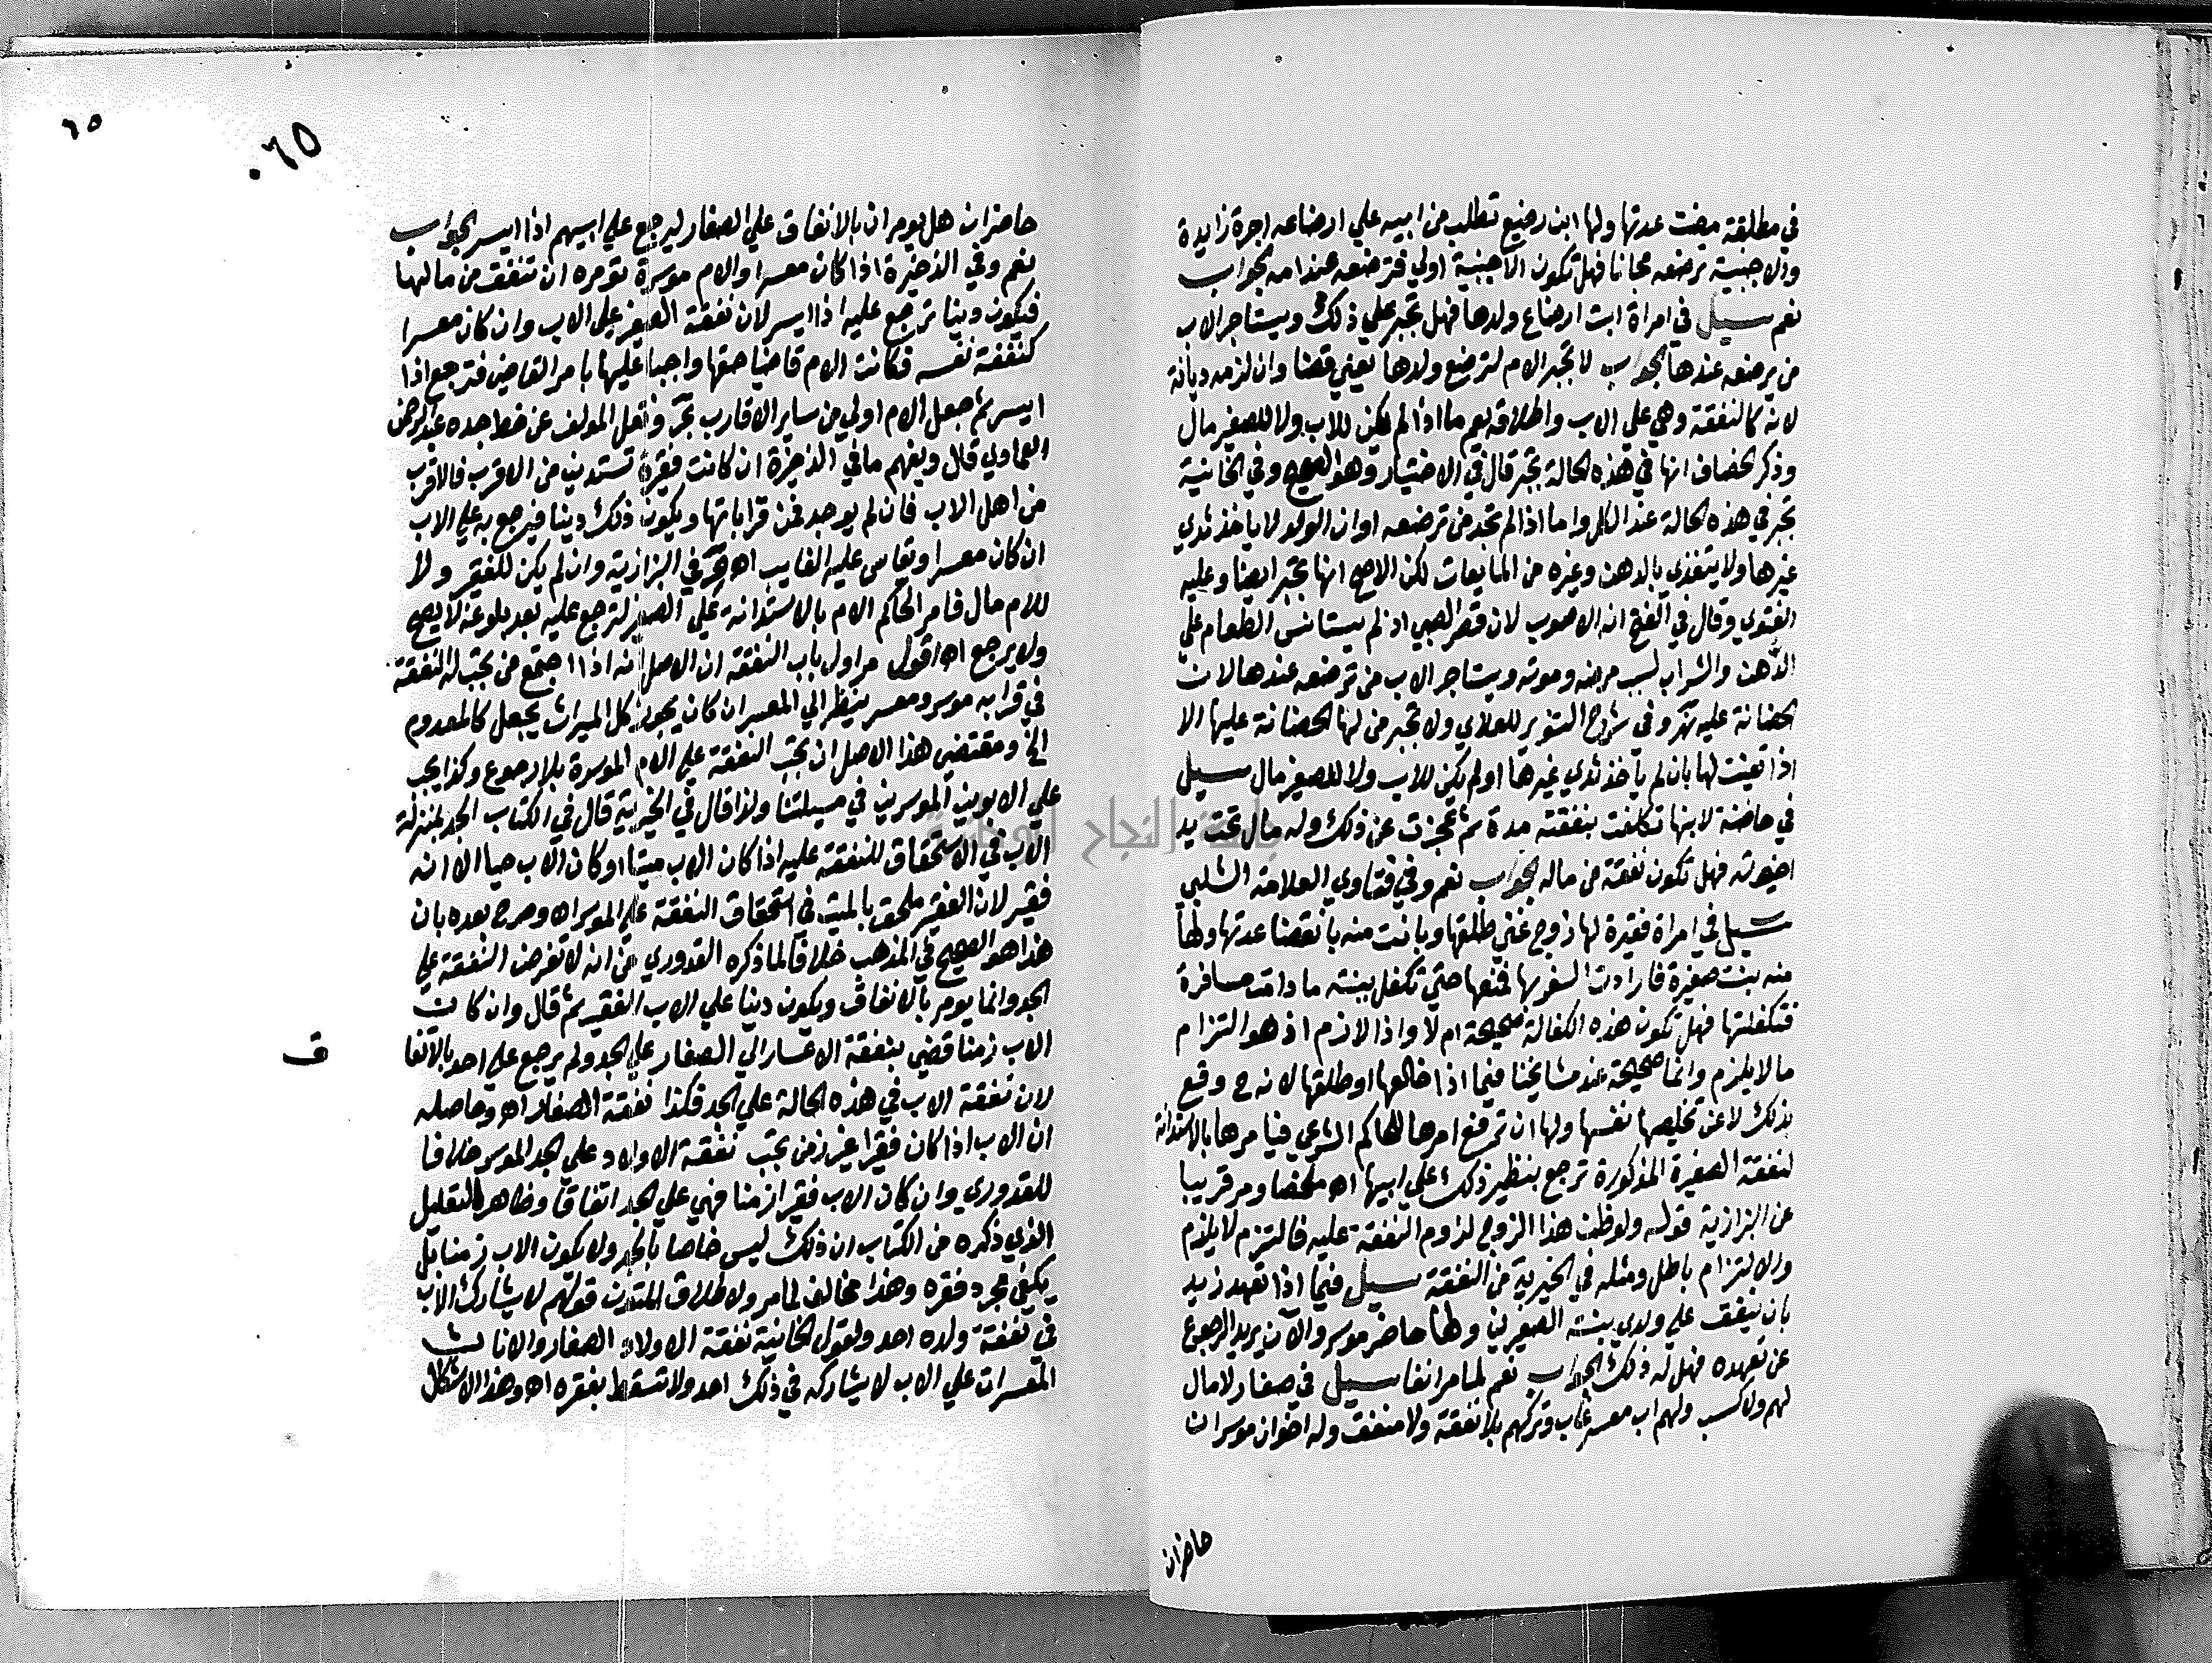 في مطلقة مضت عدتها ولها ابن رضيع تطلب من ابيه علي ارضاعه اجرة زايدة
والاجنبية ترضعه مجانا فهل تكون الاجنبية اولي فترضعه عند امه الجواب
نعم سيل في امراة ابت ارضاع ولدها فهل تجبر علي ذلك ويستاجر الاب
من يرضعه عندها الجواب لا تجبر الام لترضع ولدها يعني قضا وان لزمه ديانة
لانه كالنفقة وهي علي الاب واطلاقه يعم ما اذا لم يكن للاب ولا للصغير مال
وذكر الخصاف انها في هذه الحالة تجبر قال في الاختيار وهو الصحيح وفي الخانية
تجبر في هذه الحالة عند الكل واما اذا لم تجد من ترضعه او ان الولد لا ياخذ ثدي
غيرها ولا يتغذي بالدهن وغيره من المايعات لكن الاصح انها تجبر ايضا وعليه
الفتوي وقال في الفتح انه الاصوب لان قصر الصبي اذ لم يستانس الطعام علي
الدهن والشراب لسبب مرضه وموته ويستاجر الاب من ترضعه عندها لان
الحضانة عليه نهر وفي شرح التنوير للعلاي ولا تجبر من لها الحضانة عليها الا
اذا تعينت لها بان لم ياخذ ثدي غيرها او لم يكن للاب ولا للصغير مال سيل
في حاضنة لابنها تكلفت بنفقته مدة ثم عجزت عن ذلك وله مال تحت يد
اخوته فهل تكون نفقة من ماله الجواب نعم وفي فتاوي العلامة الشلبي
سيل في امراة فقيرة لها زوج غني طلقها وبانت منه بانقضا عدتها ولها
منه بنت صغيرة فارادت السفر بها فمنعها حتي تكفل ببنته ما دامت مسافرة
فتكفلتها فهل تكون هذه الكفالة صحيحة ام لا واذا لازم اذ هو التزام
ما لا يلزم وانما صحيحة عند مشايخنا فيما اذا خالعها او طلقها لانه ح وقع
بذلك لاعن تخليصها نفسها ولها ان ترفع امرها للحاكم الشرعي فيامرها بالاستدانة
لنفقة الصغيرة المذكورة ترجع بنظير ذلك علي ابيها اه ملخصا ومر قريبا
عن البزازية قوله ولو ظن هذا الزوج لزوم النفقة عليه فالتزم لا يلزم
والالتزام باطل ومثله في الخيرية من النفقة سيل فيما اذا تعهد زيد
بان ينفق علي ولدي بنته الصغيرين ولهما حاضر موسر والان يريد الرجوع
عن تعهده فهل له ذلك الجواب نعم لما مر انفا سيل في صغار لا مال
لهم ولا كسب ولهم اب معسر غاب وتركهم بلا نفقة ولا منفق وله اخوان موسران
حاضران
٦٥
٦٥٠
حاضران هل يومران بالانفاق علي الصغار ليرجع علي ابيهم اذا ايسر الجواب
نعم وفي الذخيرة اذا كان معسرا والام موسرة تومره ان تنفق من مالها
فيكون دينا ترجع عليه اذا ايسر لان نفقة الصغير علي الاب وان كان معسرا
كنفقة نفسه فكانت الام قاضيا حقها واجبا عليها بامر القاضي فترجع اذا
ايسر ثم جعل الام اولي من ساير الاقارب بحر ونقل المولف عن خط جده عبد الرحمن
العمادي قال ويفهم ما في الذخيرة ان كانت فقيرة تستدين من الاقرب فالاقرب
من اهل الاب فان لم يوجد فمن قراباتها ويكون ذلك دينا فيرجع به علي الاب
ان كان معسرا ويقاس عليه الغايب اه بحر في البزازية وان لم يكن للفقير ولا
للام مال فامر الحاكم الام بالاستدانة علي الصغير لترجع عليه بعد بلوغه لا يصح
ولا يرجع اه اقول مر اول باب النفقة ان الاصل انه اذا اجتمع من تجب له النفقة
في قرابه موسر ومعسر ينظر الي المعسر ان كان يحوز كل الميراث يجعل كالمعدوم
الخ ومقتضي هذا الاصل ان تجب النفقة علي الام الموسرة بلا رجوع وكذا يجب
علي الابوين الموسرين في مسيلتنا ولذا قال في الخيرية قال في الكتاب الجد بمنزلة
الاب في الاستحقاق للنفقة عليه اذا كان الاب ميتا او كان الاب حيا الا انه
فقير لان الفقير ملحق بالميت في استحقاق النفقة علي الموسر اه وصرح بعده بان
هذا هو الصحيح في المذهب خلافا لما ذكره القدوري من انه لا تفرض النفقة علي
الجد وانما يومر بالانفاق ويكون دينا علي الاب الفقير ثم قال وان كان
الاب زمنا قضي بنفقة الاعسار الي الصغار علي الجد ولم يرجع علي احد بالاتفا
ق
لان نفقة الاب في هذه الحالة علي الجد فكذا نفقة الصغار اه وحاصله
ان الاب اذا كان فقيرا غير زمن تجب نفقة الاولاد علي الجد الموسر خلافا
للقدوري وان كان الاب فقيرا زمنا فهي علي الجد اتفاقا وظاهر التعليل
الذي ذكره من الكتاب ان ذلك ليس خاصا بالجد ولا بكون الاب زمنا بل
يكفي مجرد فقره وهذا مخالف لما مر ولاطلاق المتون قولهم لا يشارك الاب
في نفقة ولده احد ولقول الخانية نفقة الاولاد الصغار والاناث
المعسرات علي الاب لا يشاركه في ذلك احد ولا تسقط بفقره اه وهذا الاشكال